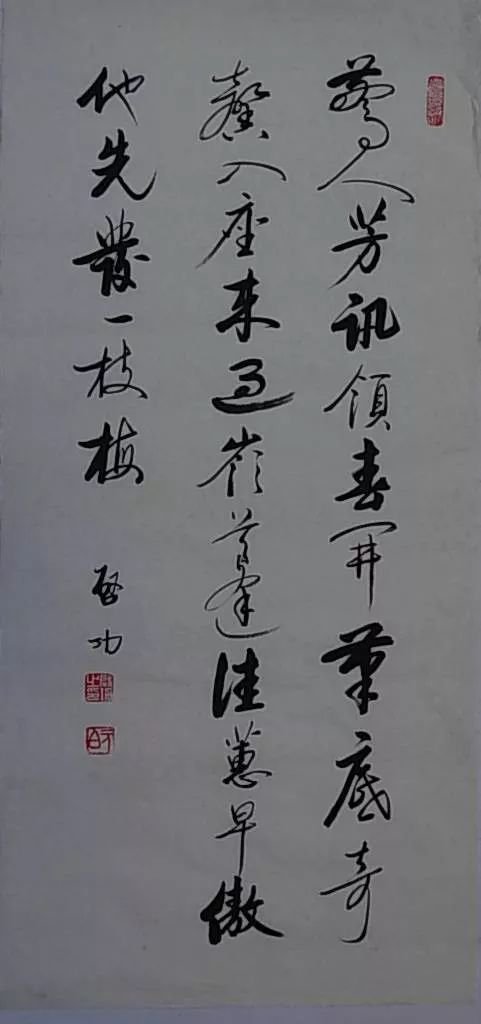 驚人芳訊領春開筆底奇
馨入座來過嶺首逢佳蕙早傲
他先發一枝梅
啓功